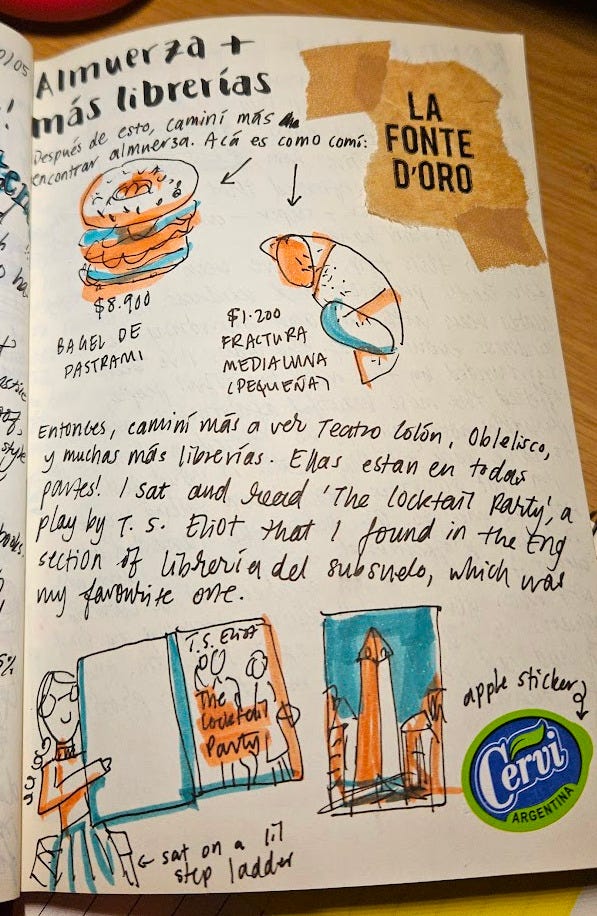 Almuerza +
más librerías
LA
FONTE
D'ORO
Después de esto, caminí más
encontrar almuerza. Acá es como comí:
$8.900
BAGEL DE
PASTRAMI
$1.200
FRACTURA
MEDIALUNA
(PEQUEÑA)
Entonces, caminí más a ver Teatro Colón, Oblelisco,
y muchas más librerías. Ellas estan en todas
partes! I sat and read 'The Cocktail Party', a
play by T. S. Eliot that I found in the Eng
section of librería del subsuelo, which was
my favourite one.
T.S. Eliot
The
Cocktail
Party
apple sticker
Cervi
ARGENTINA
← sat on a lil
step ladder